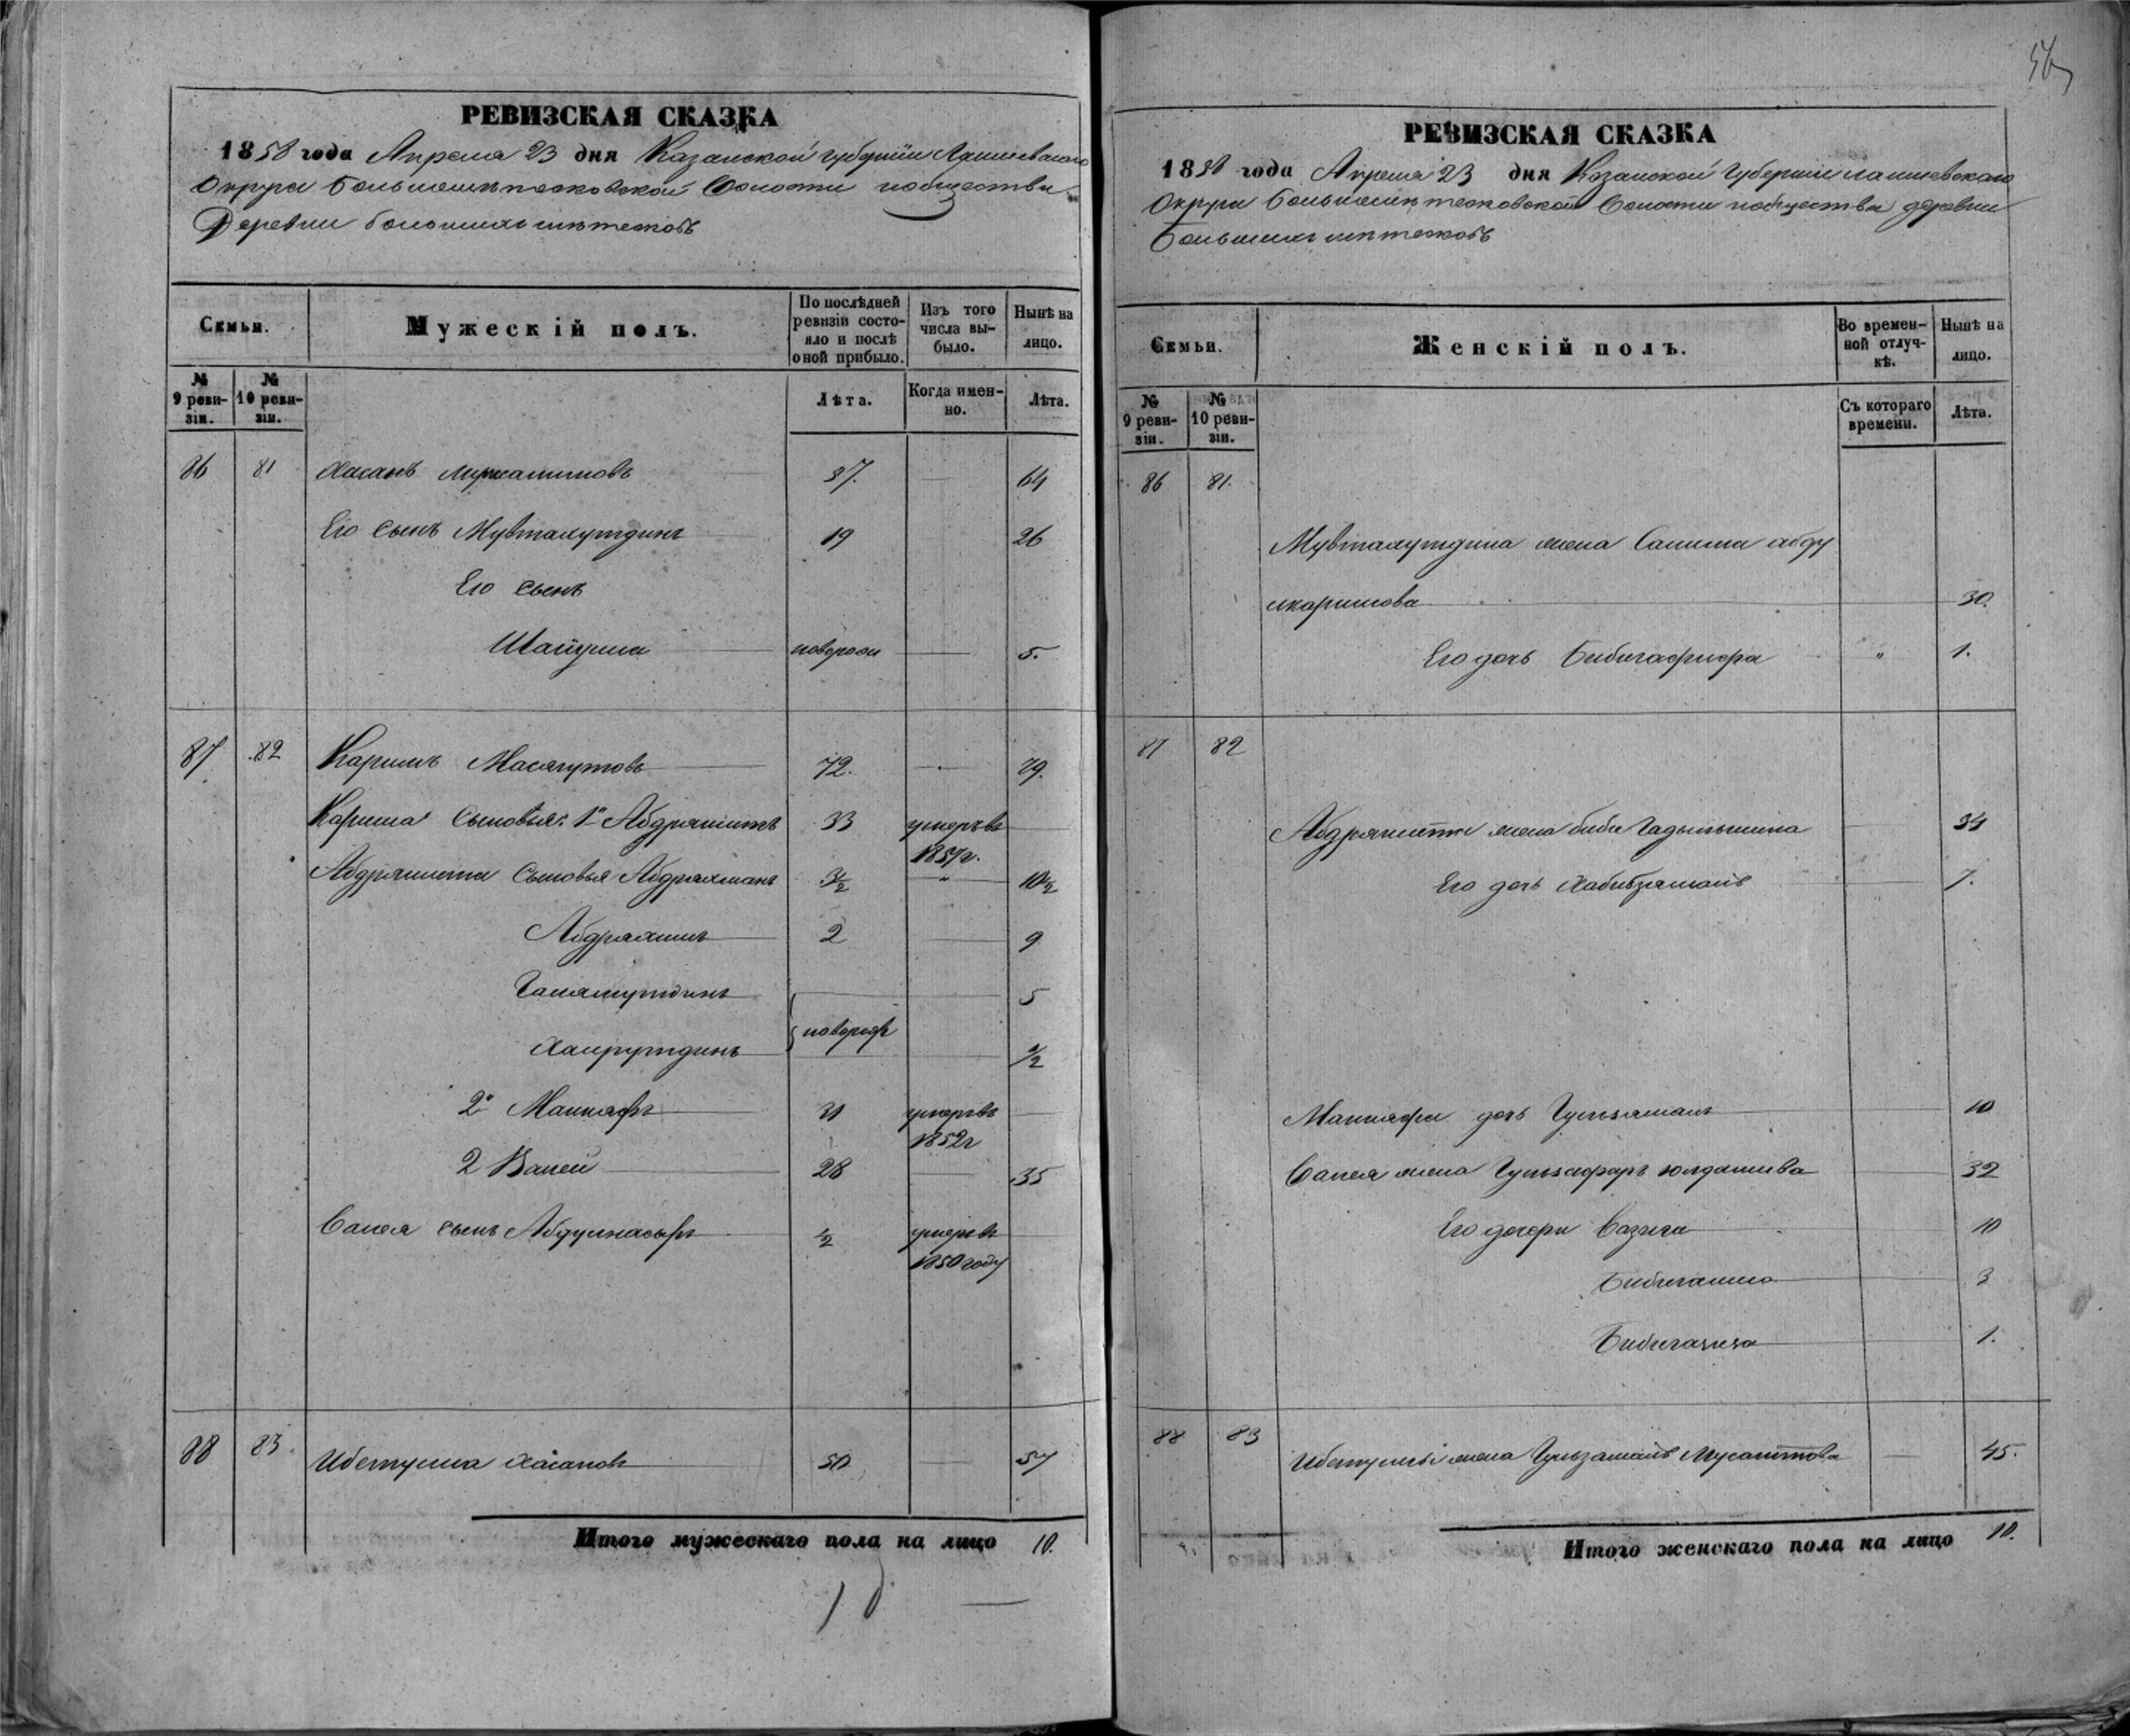 56
РЕВИЗСКАЯ СКАЗКА
1858 года Апреля 23 дня Казанской губернiи Лаишевскаго
Округи Большешинтековской Волости и общества
Деревни большихъ
По послѣдней ревизiи состояло и послѣ оной прибыло.
Изъ того числа выбыло.
Нынѣ на лицо.
Семьи.
Мужескiй полъ.
№ 9 ревизiи.
№ 10 ревизiи.
Лѣта.
Когда именно.
Лѣта.
86 81 Хасанъ 57. 64
Его сынъ Мувталутдинъ 19 26
Его сынъ
новорож 5.
87 82 Каримъ Масягутовъ 72. 79.
Карима сыновья: 1й Абдряшитъ 33 умеръ въ
1857г.
Абдряшита сыновья Абдрахманъ 3½ " 10½
Абдряхимъ 2 9
5
новорож
Хайрутдинъ ½
2й Маннафъ 31 умеръ въ
1852г
2 28 35
Санея сынъ Абдулнасыръ ½ умеръ въ
1850 году
88 83. Ибетулла Хасановъ 50 57
Итого мужескаго пола на лицо 10.
10
РЕВИЗСКАЯ СКАЗКА
1858 года Апреля 23 дня Казанской Губернiи лаишевскаго
Округи Большешинтековской Волости и общества деревни
Большихъ
Семьи.
Женскiй полъ.
Во временной отлучкѣ.
Нынѣ на лицо.
№ 9 ревизiи.
№ 10 ревизiи.
Съ котораго времени.
Лѣта.
86 81.
Мувталутдина жена Салима абду
лкаримова 30.
Его дочь " 1.
87 82
Абдряшита жена биби 34
Его дочь Хабибзямалъ 7.
Маннафа дочь Гульзямалъ 10
Санея жена юлдашева 32
Его дочери Вазига 10
3
Бибигазиза 1.
88 83 Ибетуллы жена Гульзамалъ Мусаитова 45.
Итого женскаго пола на лицо 10.